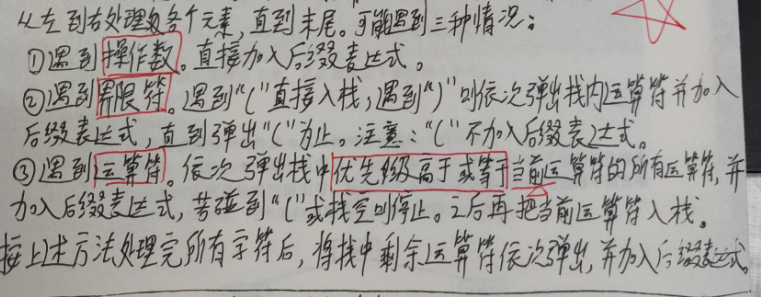 从左到右处理各个元素,直到末尾。可能遇到三种情况:
①遇到操作数。直接加入后缀表达式。
②遇到界限符。遇到“(”直接入栈,遇到“)”则依次弹出栈内运算符并加入
后缀表达式,直到弹出“(”为止。注意:“(”不加入后缀表达式。
③遇到运算符。依次弹出栈中优先级高于或等于当前运算符的所有运算符,并
加入后缀表达式,若碰到“(”或栈空则停止。之后再把当前运算符入栈。
按上述方法处理完所有字符后,将栈中剩余运算符依次弹出,并加入后缀表达式。